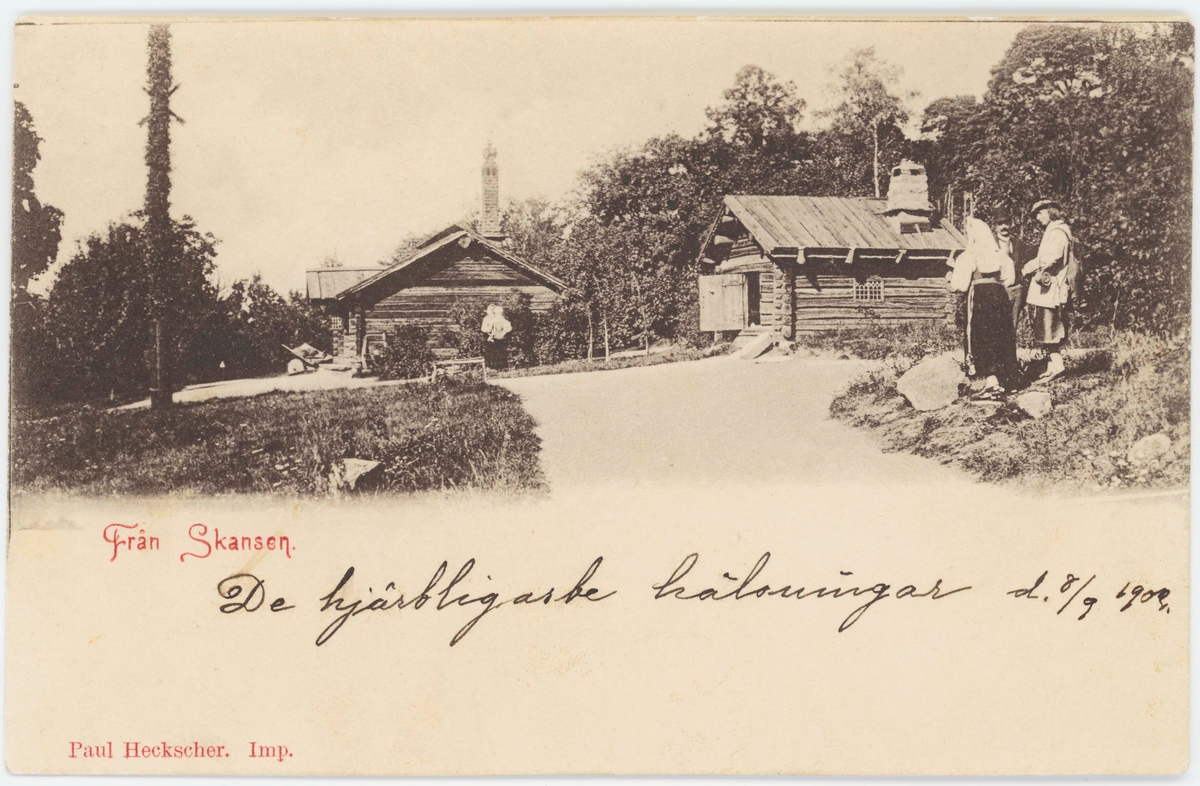 Från Skansen.
De hjärtligaste hälsningar d. 8/9
Paul Heckscher. Imp.